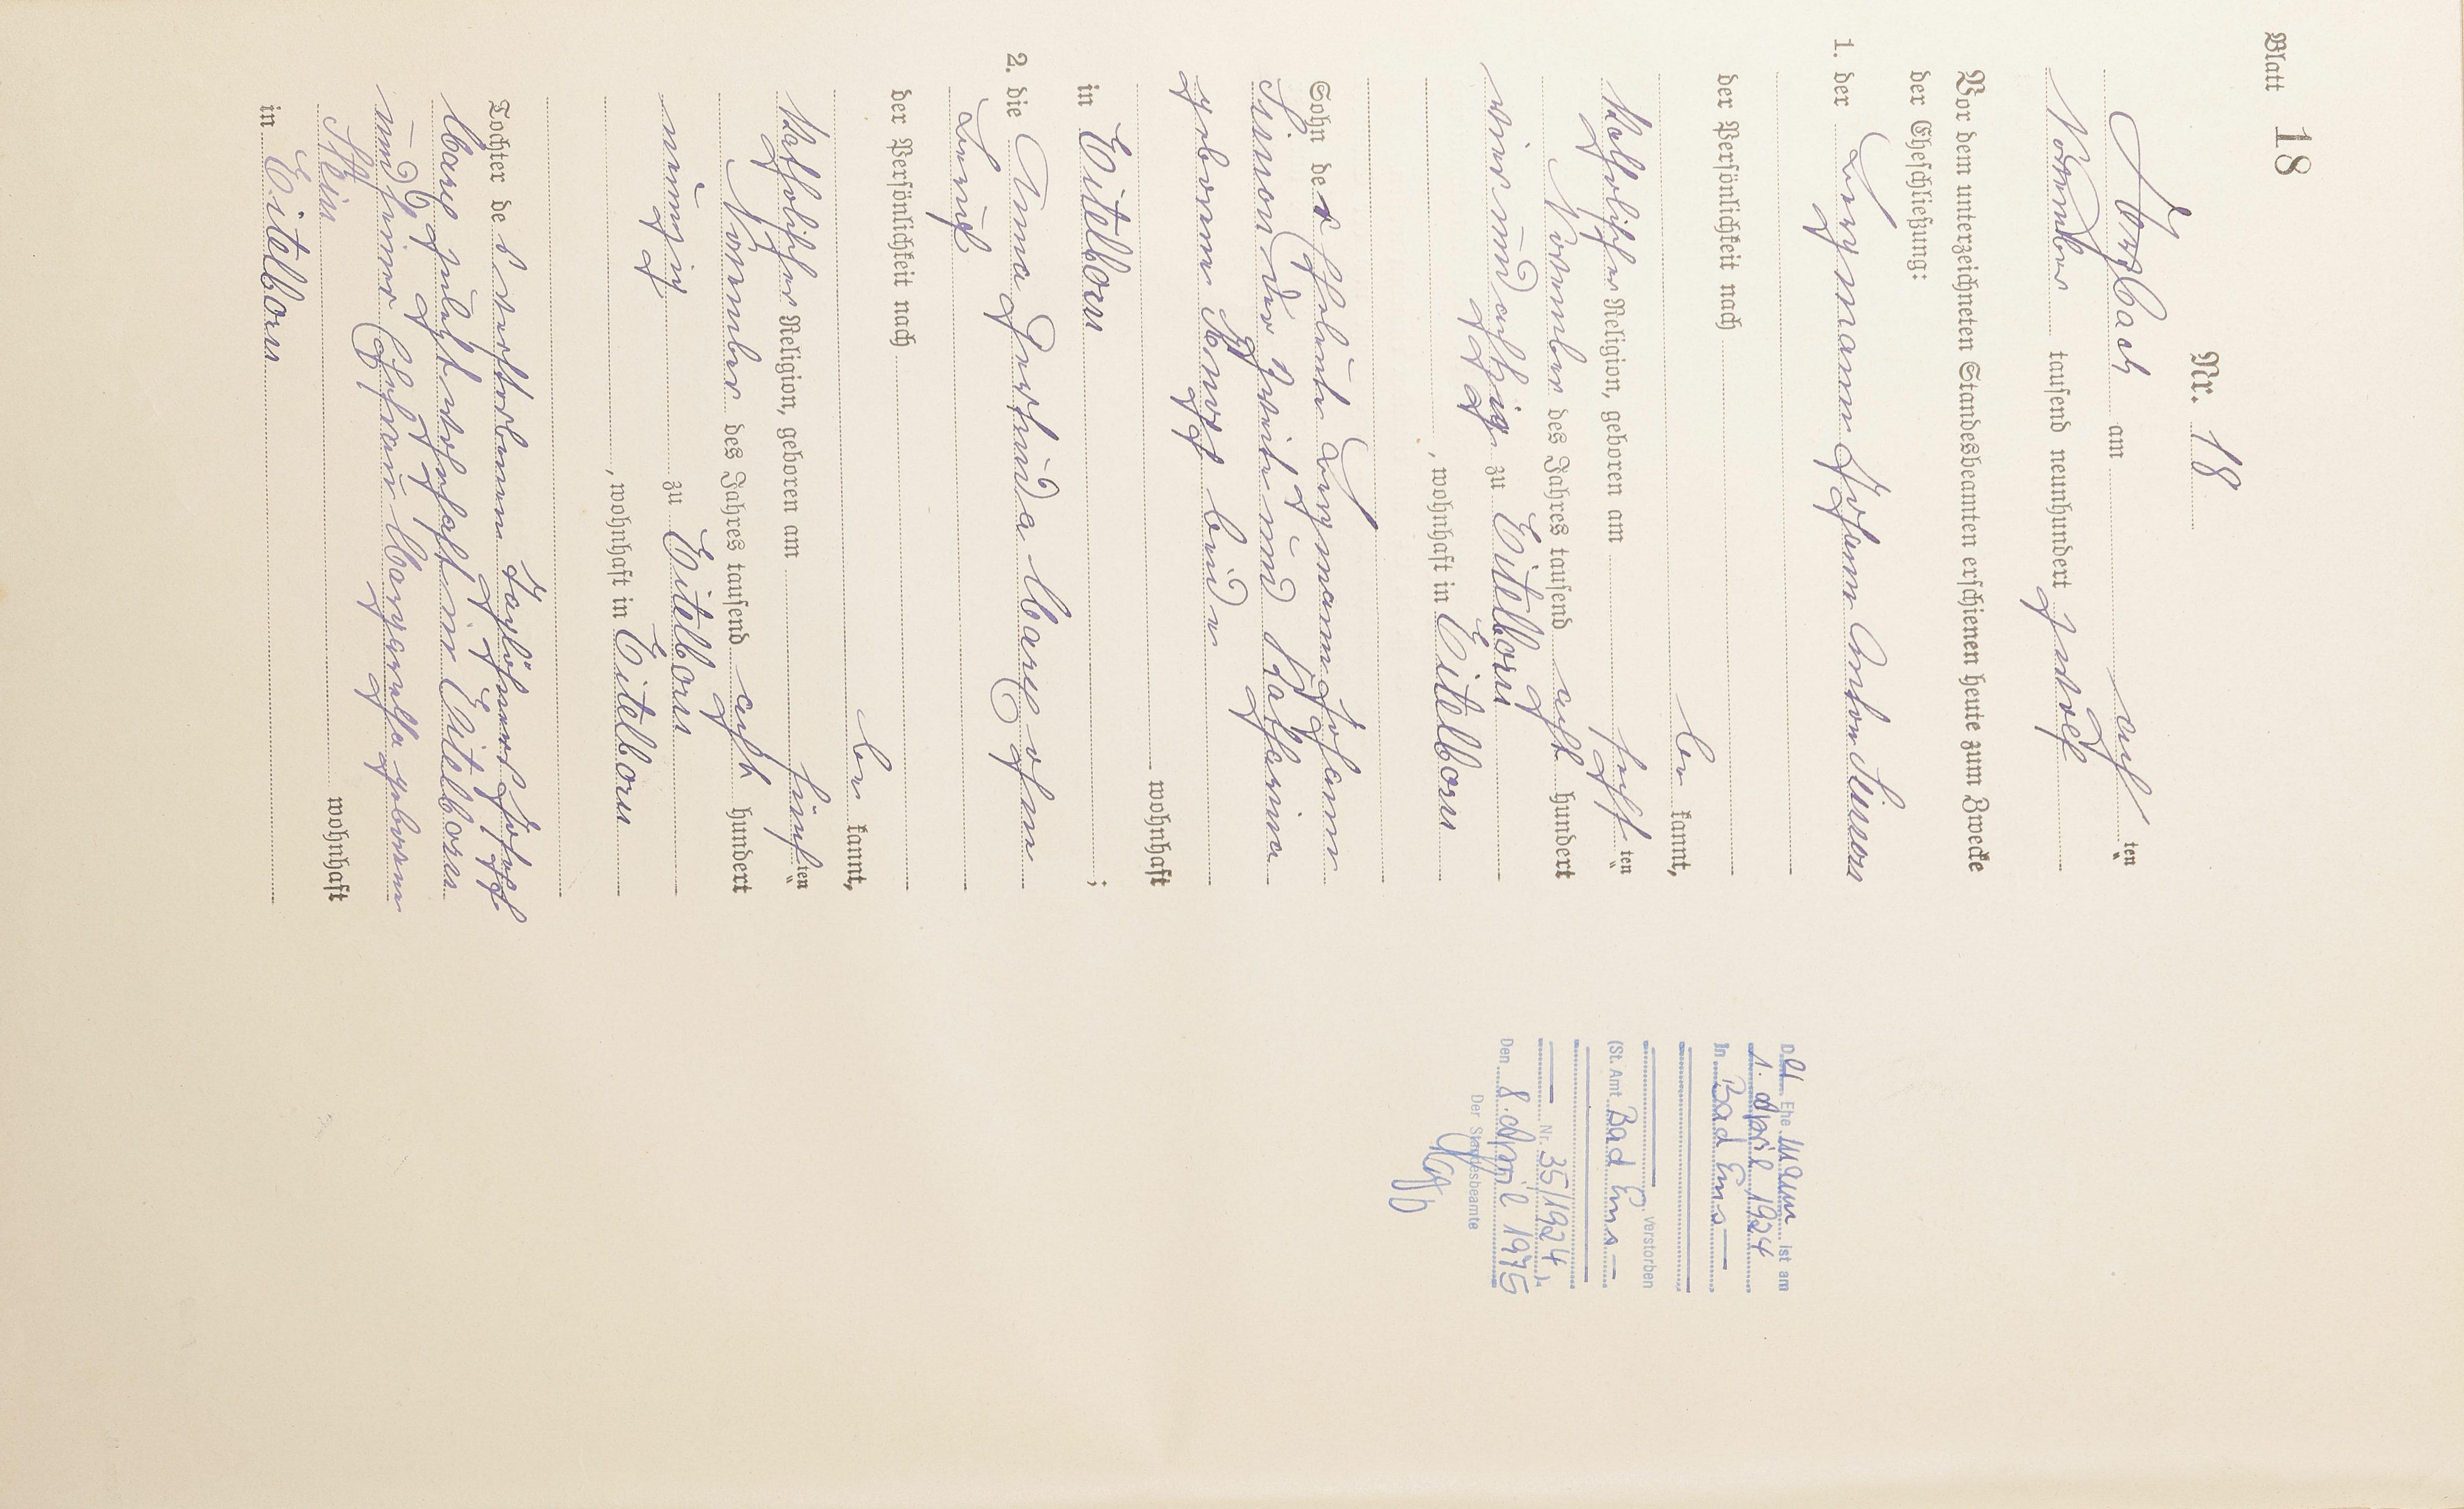 Blatt 18
Nr. 18
Arzbach am acht ten
November tausend neunhundert zwölf
Vor dem unterzeichneten Standesbeamten erschienen heute zum Zwecke
der Eheschließung:
1. der Bergmann Johann Anton Simon
der Persönlichkeit nach
be kannt,
katholischer Religion, geboren am sechs ten
November des Jahres tausend acht hundert
vier und achtzig zu Eitelborn
, wohnhaft in Eitelborn
Sohn der Eheleute Bergmann Johann
Simon der Zweite und Katharina
geborene beide
wohnhaft
in Eitelborn ;
2. die Anna Gertruda Marx ohne
Beruf
der Persönlichkeit nach
be kannt,
katholischer Religion, geboren am fünf ten
November des Jahres tausend acht hundert
neunzig zu Eitelborn
, wohnhaft in Eitelborn
Tochter des verstorbenen Tagelöhners Joseph
Marx zuletzt wohnhaft in Eitelborn
und seiner Ehefrau Margaretha geborene
Stein wohnhaft
in Eitelborn
D er Ehe Mann ist am
1. April 1924
In Bad Ems
verstorben
(St. Amt Bad Ems
Nr. 35/1924 ).
Den 8. April 1975
Der Standesbeamte